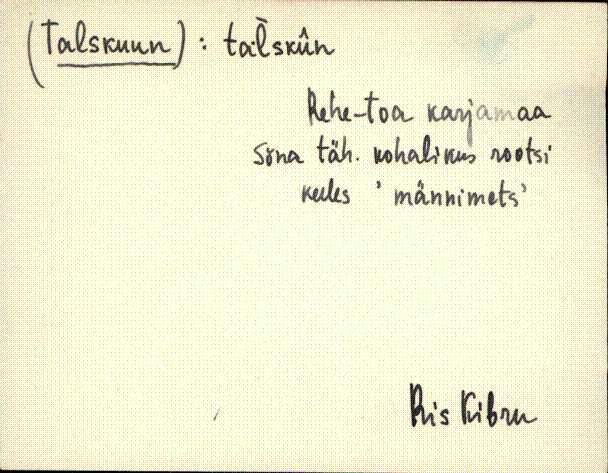 (Talskuun) : tal̆skûn
Rehe-toa karjamaa
Sõna täh. kohalikus rootsi
keeles 'männimets'
Ris Kibru